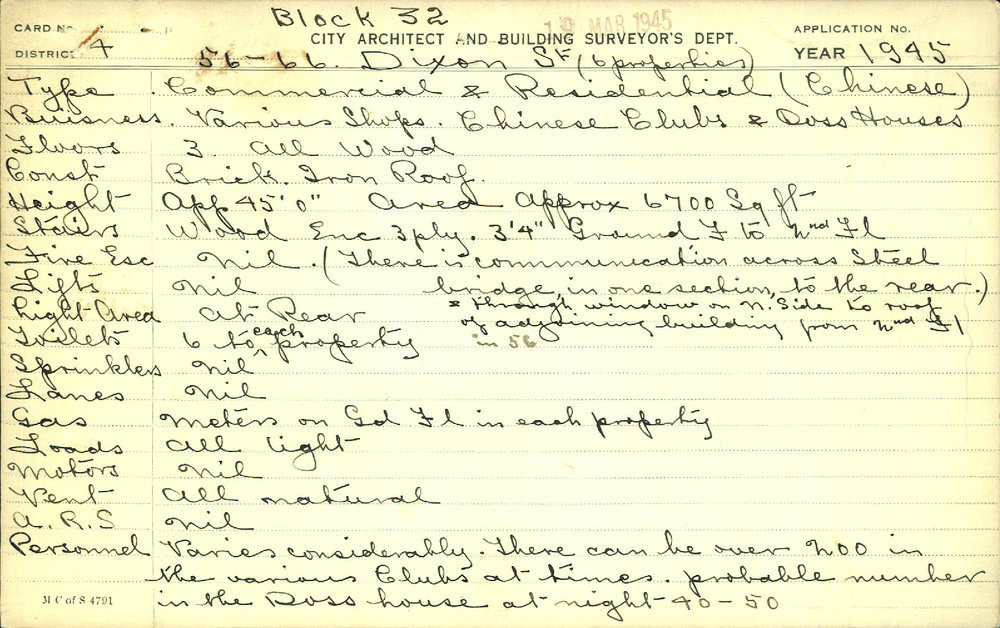 Block 32
12 MAR 1945
CARD No.
CITY ARCHITECT AND BUILDING SURVEYOR'S DEPT.
APPLICATION No.
DISTRICT 4
56-66. Dixon St (6 properties)
YEAR 1945
Type . Commercial & Residential (Chinese)
Buisness. Various Shops. Chinese Clubs & Doss Houses
Floors 3. All Wood
Const Brick. Iron Roof.
Height App 45'0" Area Approx 6700 Sq ft
Stairs Wood Enc 3ply. 3'4" Ground F to 2nd Fl
Fire Esc Nil. (There is communication across Steel
Lifts Nil bridge, in one section, to the rear.)
& through window on N. Side to roof
Light Area At Rear
of adjoining building from 2nd Fl
Toilets 6 to each property in 56
Sprinklers Nil
Lanes Nil
Gas Meters on Gd Fl in each property
Loads All light
Motors Nil
Vent All natural
A.R.S Nil
Personnel Varies considerably. There can be over 200 in
the various Clubs at times. probable number
M C of S 4791
in the Doss house at night 40-50